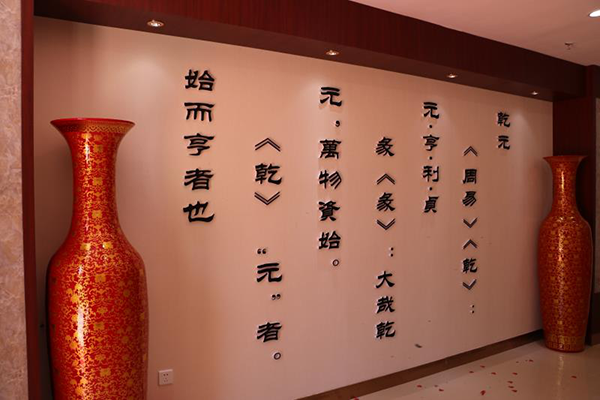 乾元
《周易》《乾》：
元·亨·利·貞
彖《彖》：大哉乾
元，萬物資始。
《乾》“元”者。
始而亨者也